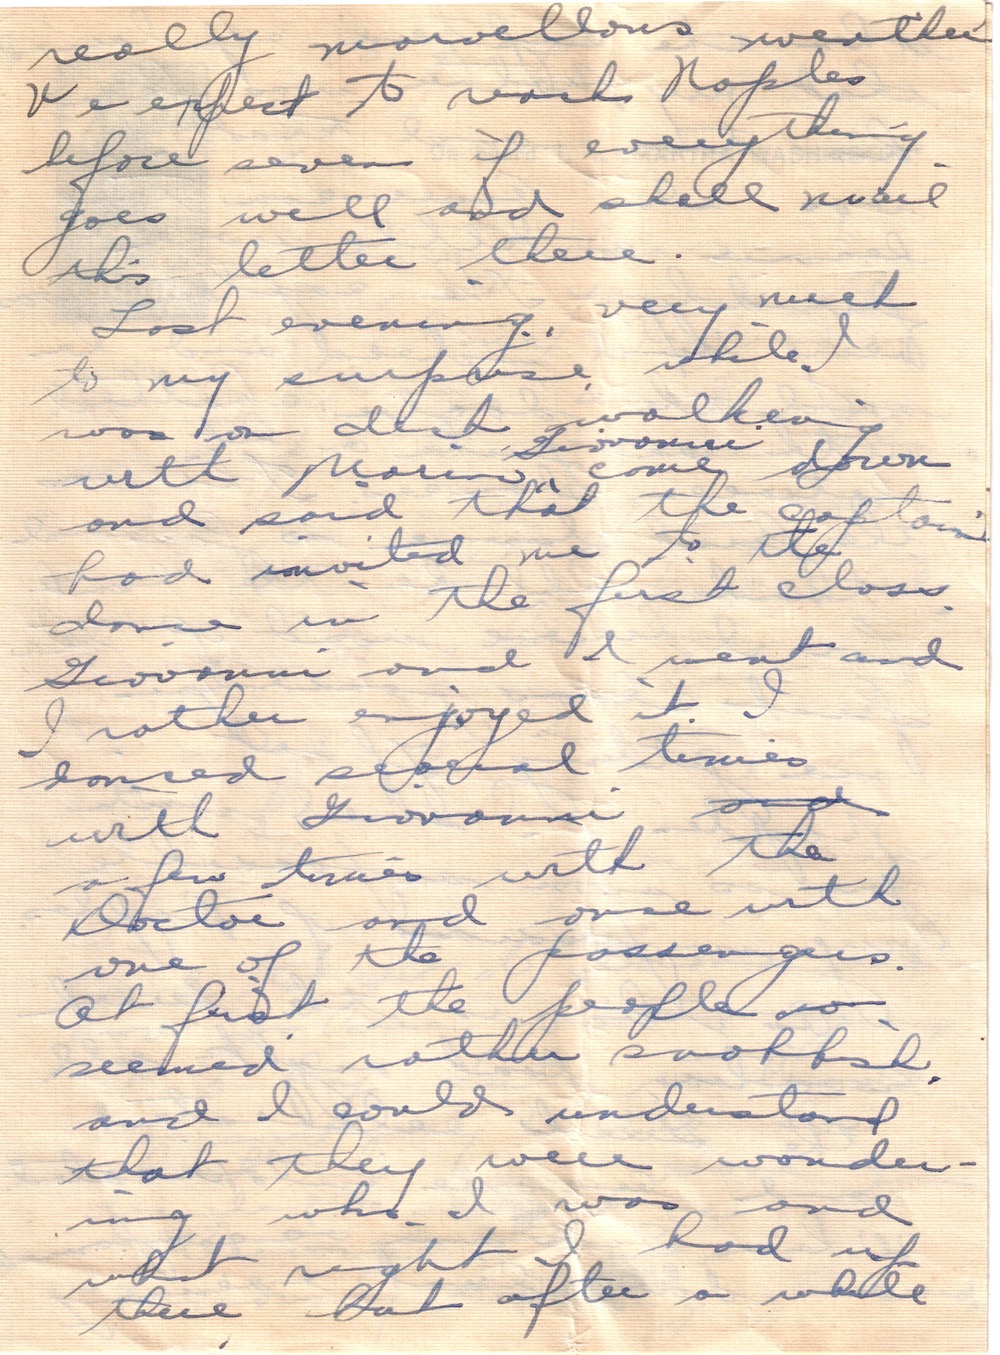 really marvellous weather
We expect to reach Naples
before seven if everything
goes well and shall mail
this letter there.
Last evening, very much
to my surprise, while I
was on deck walking
Giovanni
with Marino, came down
and said that the captain
had invited me to the
dance in the first class.
Giovanni and I went and
I rather enjoyed it. I
danced several times
with Giovanni and
a few times with the
Doctor and once with
one of the passengers.
At first the people
seemed rather snobbish,
and I could understand
that they were wonder-
ing who I was and
what right I had up
there but after a while